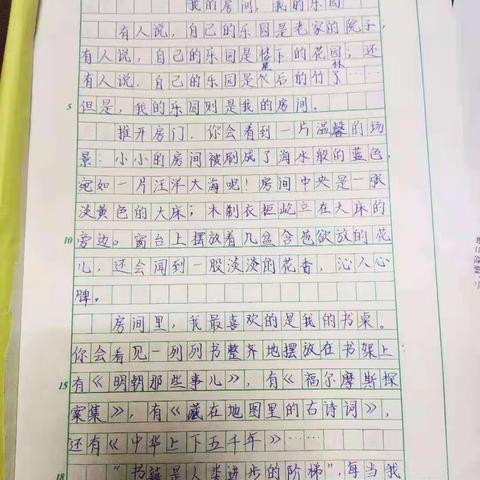 我的房间，我的乐园
有人说，自己的乐园是老家的院子，
有人说，自己的乐园是楼下的花园；还
有人说，自己的乐园是屋后的竹林……
5 但是，我的乐园则是我的房间。
推开房门，你会看到一片温馨的场
景：小小的房间被刷成了海水般的蓝色，
宛如一片汪洋大海呢！房间中央是一张
淡黄色的大床；木制衣柜屹立在大床的
10 旁边。窗台上摆放着几盆含苞欲放的花
儿，还会闻到一股淡淡的花香，沁人心
脾。
房间里，我最喜欢的是我的书桌。
你会看见一列列书整齐地摆放在书架上
15 有《明朝那些事儿》，有《福尔摩斯探
案集》，有《藏在地图里的古诗词》，
还有《中华上下五千年》……
18 “书籍是人类进步的阶梯”，每当我